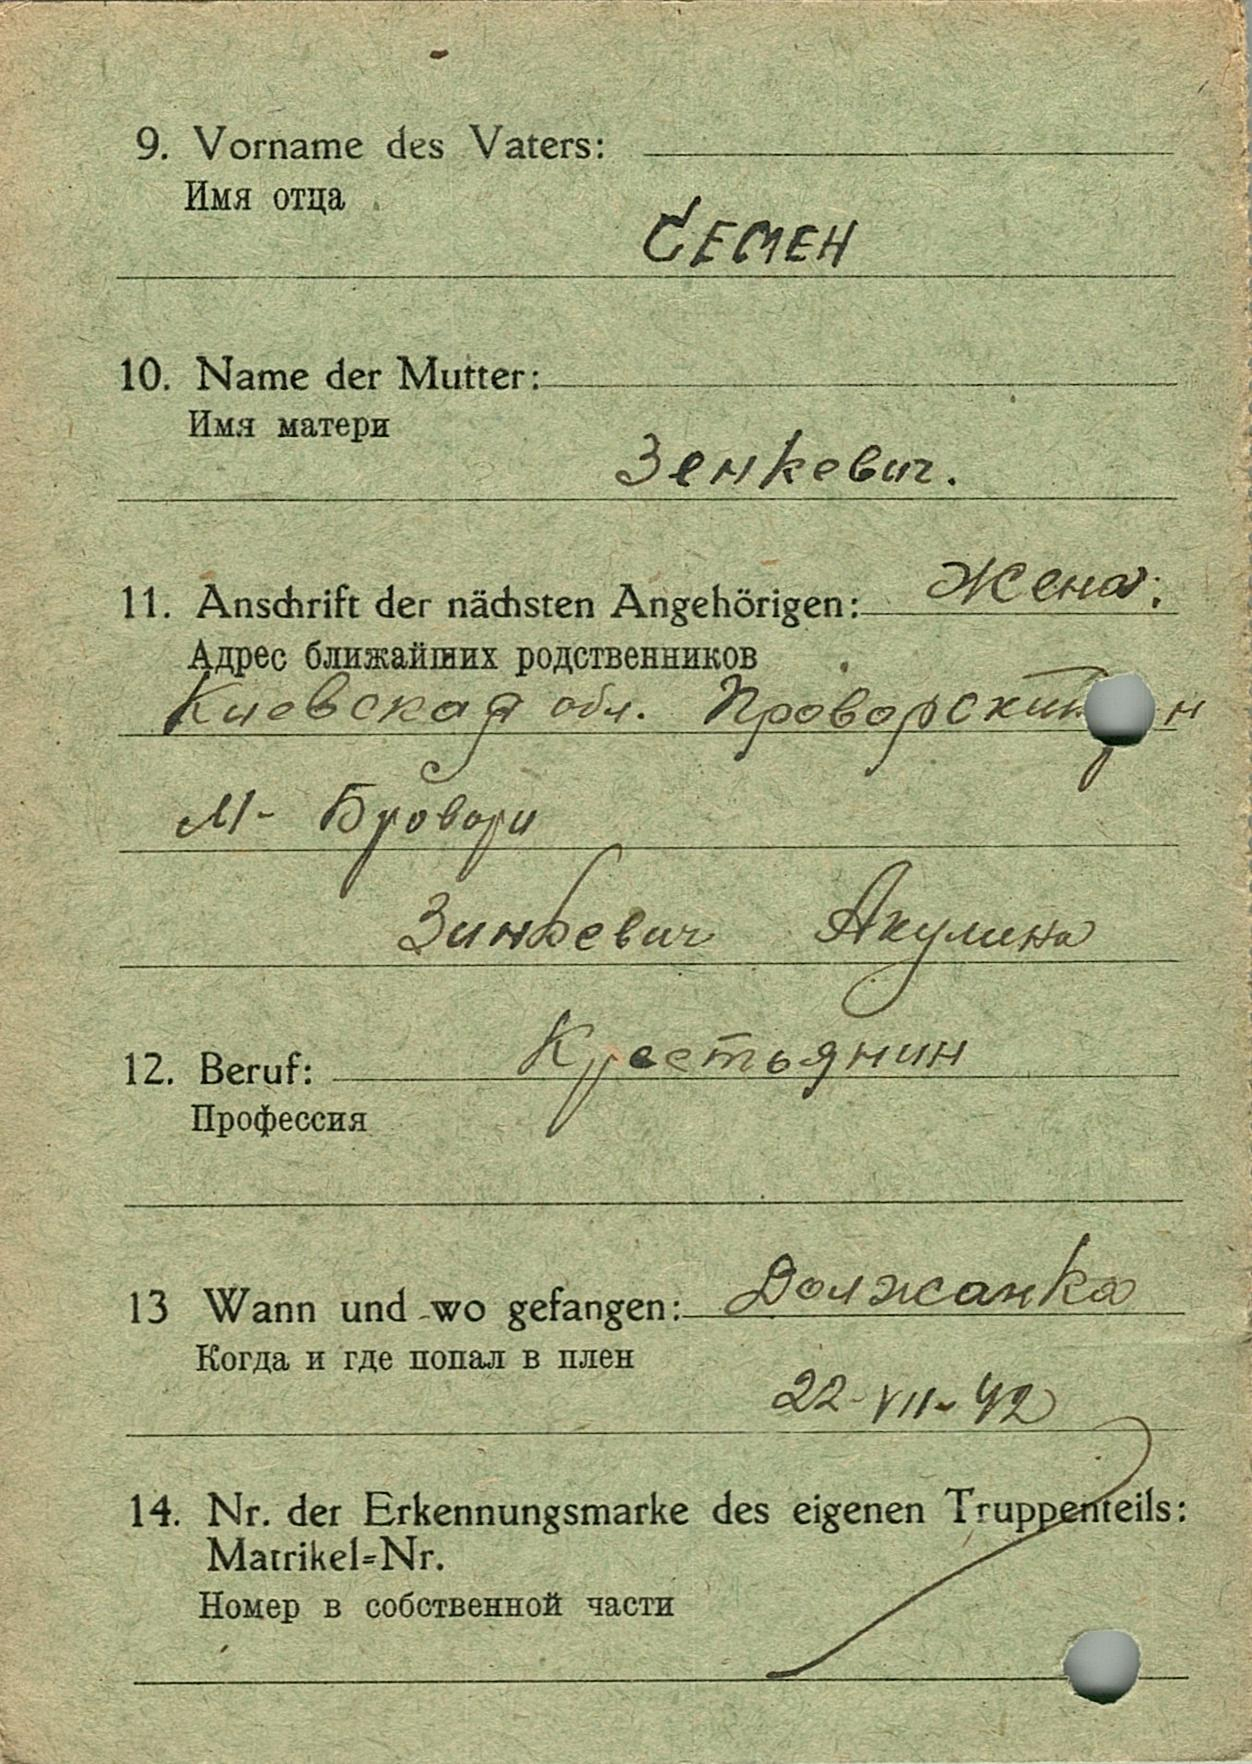 9. Vorname des Vaters:
Имя отца
СЕМЕН
10. Name der Mutter:
Имя матери
Зенкевич.
11. Anschrift der nächsten Angehörigen: Жена:
Адрес ближайших родственников
Киевская обл. Проворский
м- Бровари
Зинкевич Акулина
12. Beruf: Крестьянин
Профессия
13 Wann und wo gefangen: Должанка
Когда и где попал в плен
22-VII-42
14. Nr. der Erkennungsmarke des eigenen Truppenteils:
Matrikel=Nr.
Номер в собственной части